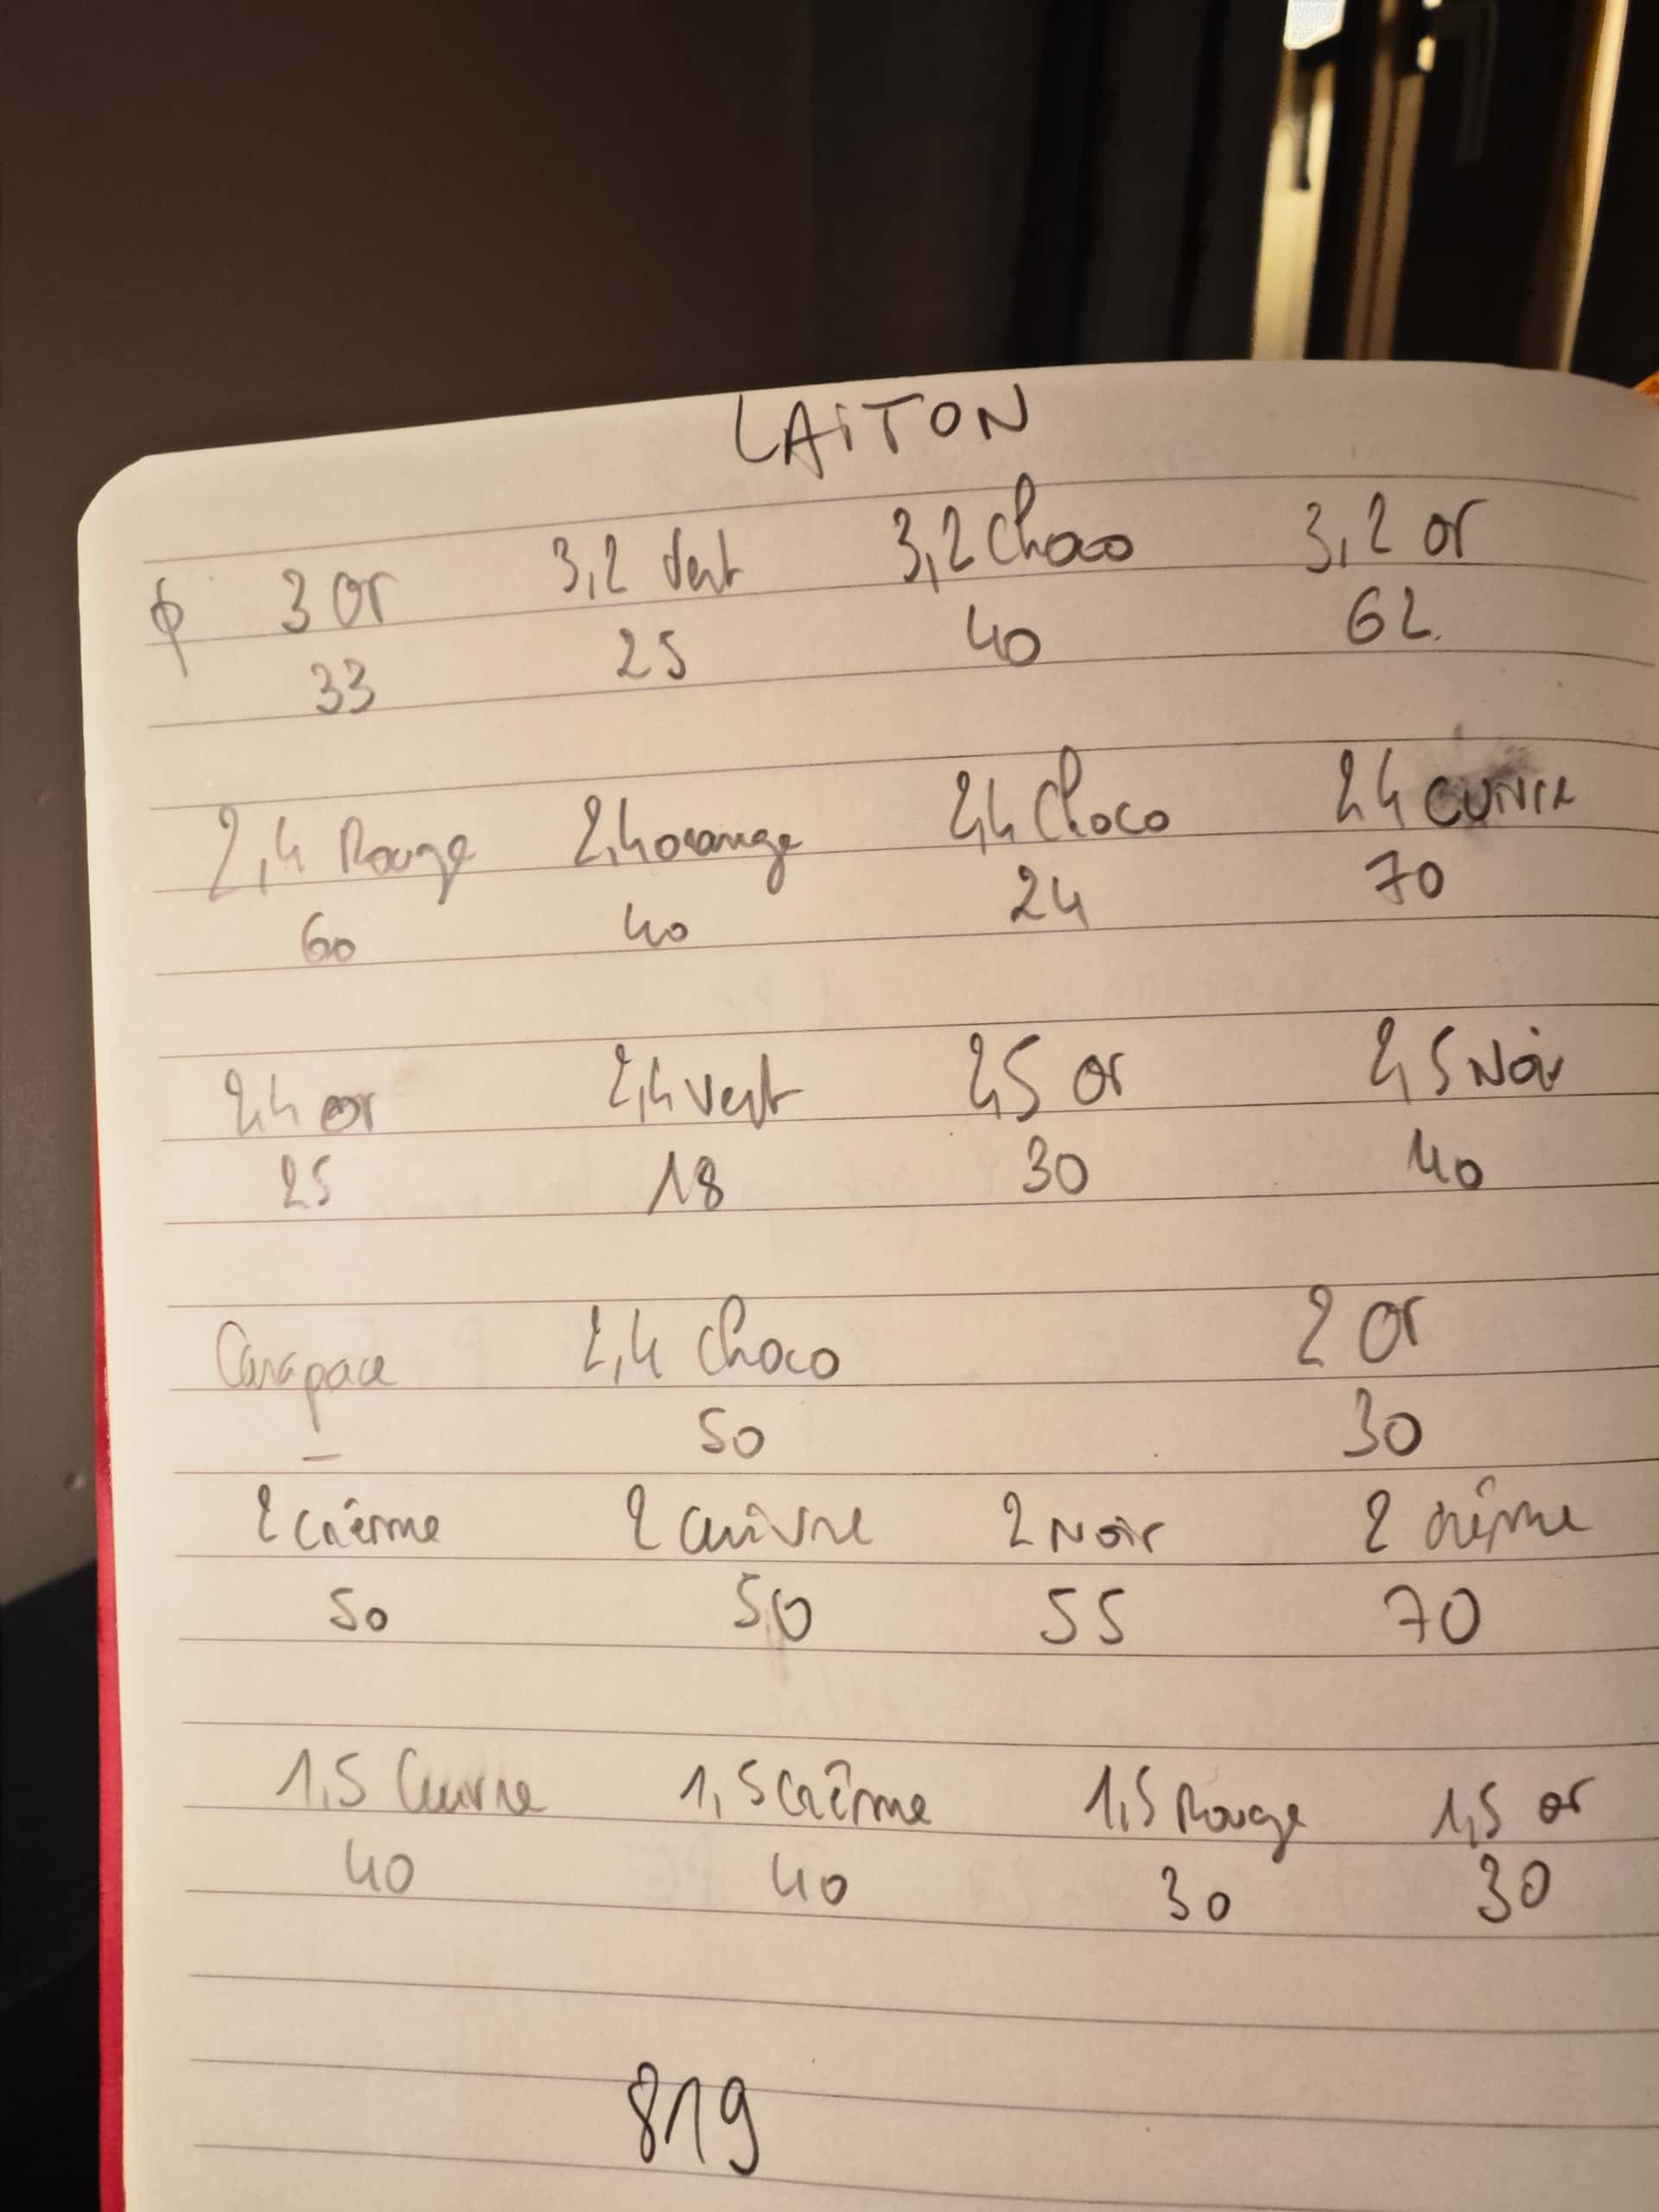 LAiTON
ϕ 3 or 3,2 Vert 3,2 Choco 3,2 or
33 25 40 62
2,4 Rouge 2,4 orange 2,4 Choco 2,4 cuivre
60 40 24 70
2,4 or 2,4 vert 2,5 or 2,5 Noir
25 18 30 40
Carapace 2,4 choco 2 or
– 50 30
2 crème 2 cuivre 2 Noir 2 crème
50 50 55 70
1,5 Cuivre 1,5 Crème 1,5 Rouge 1,5 or
40 40 30 30
819